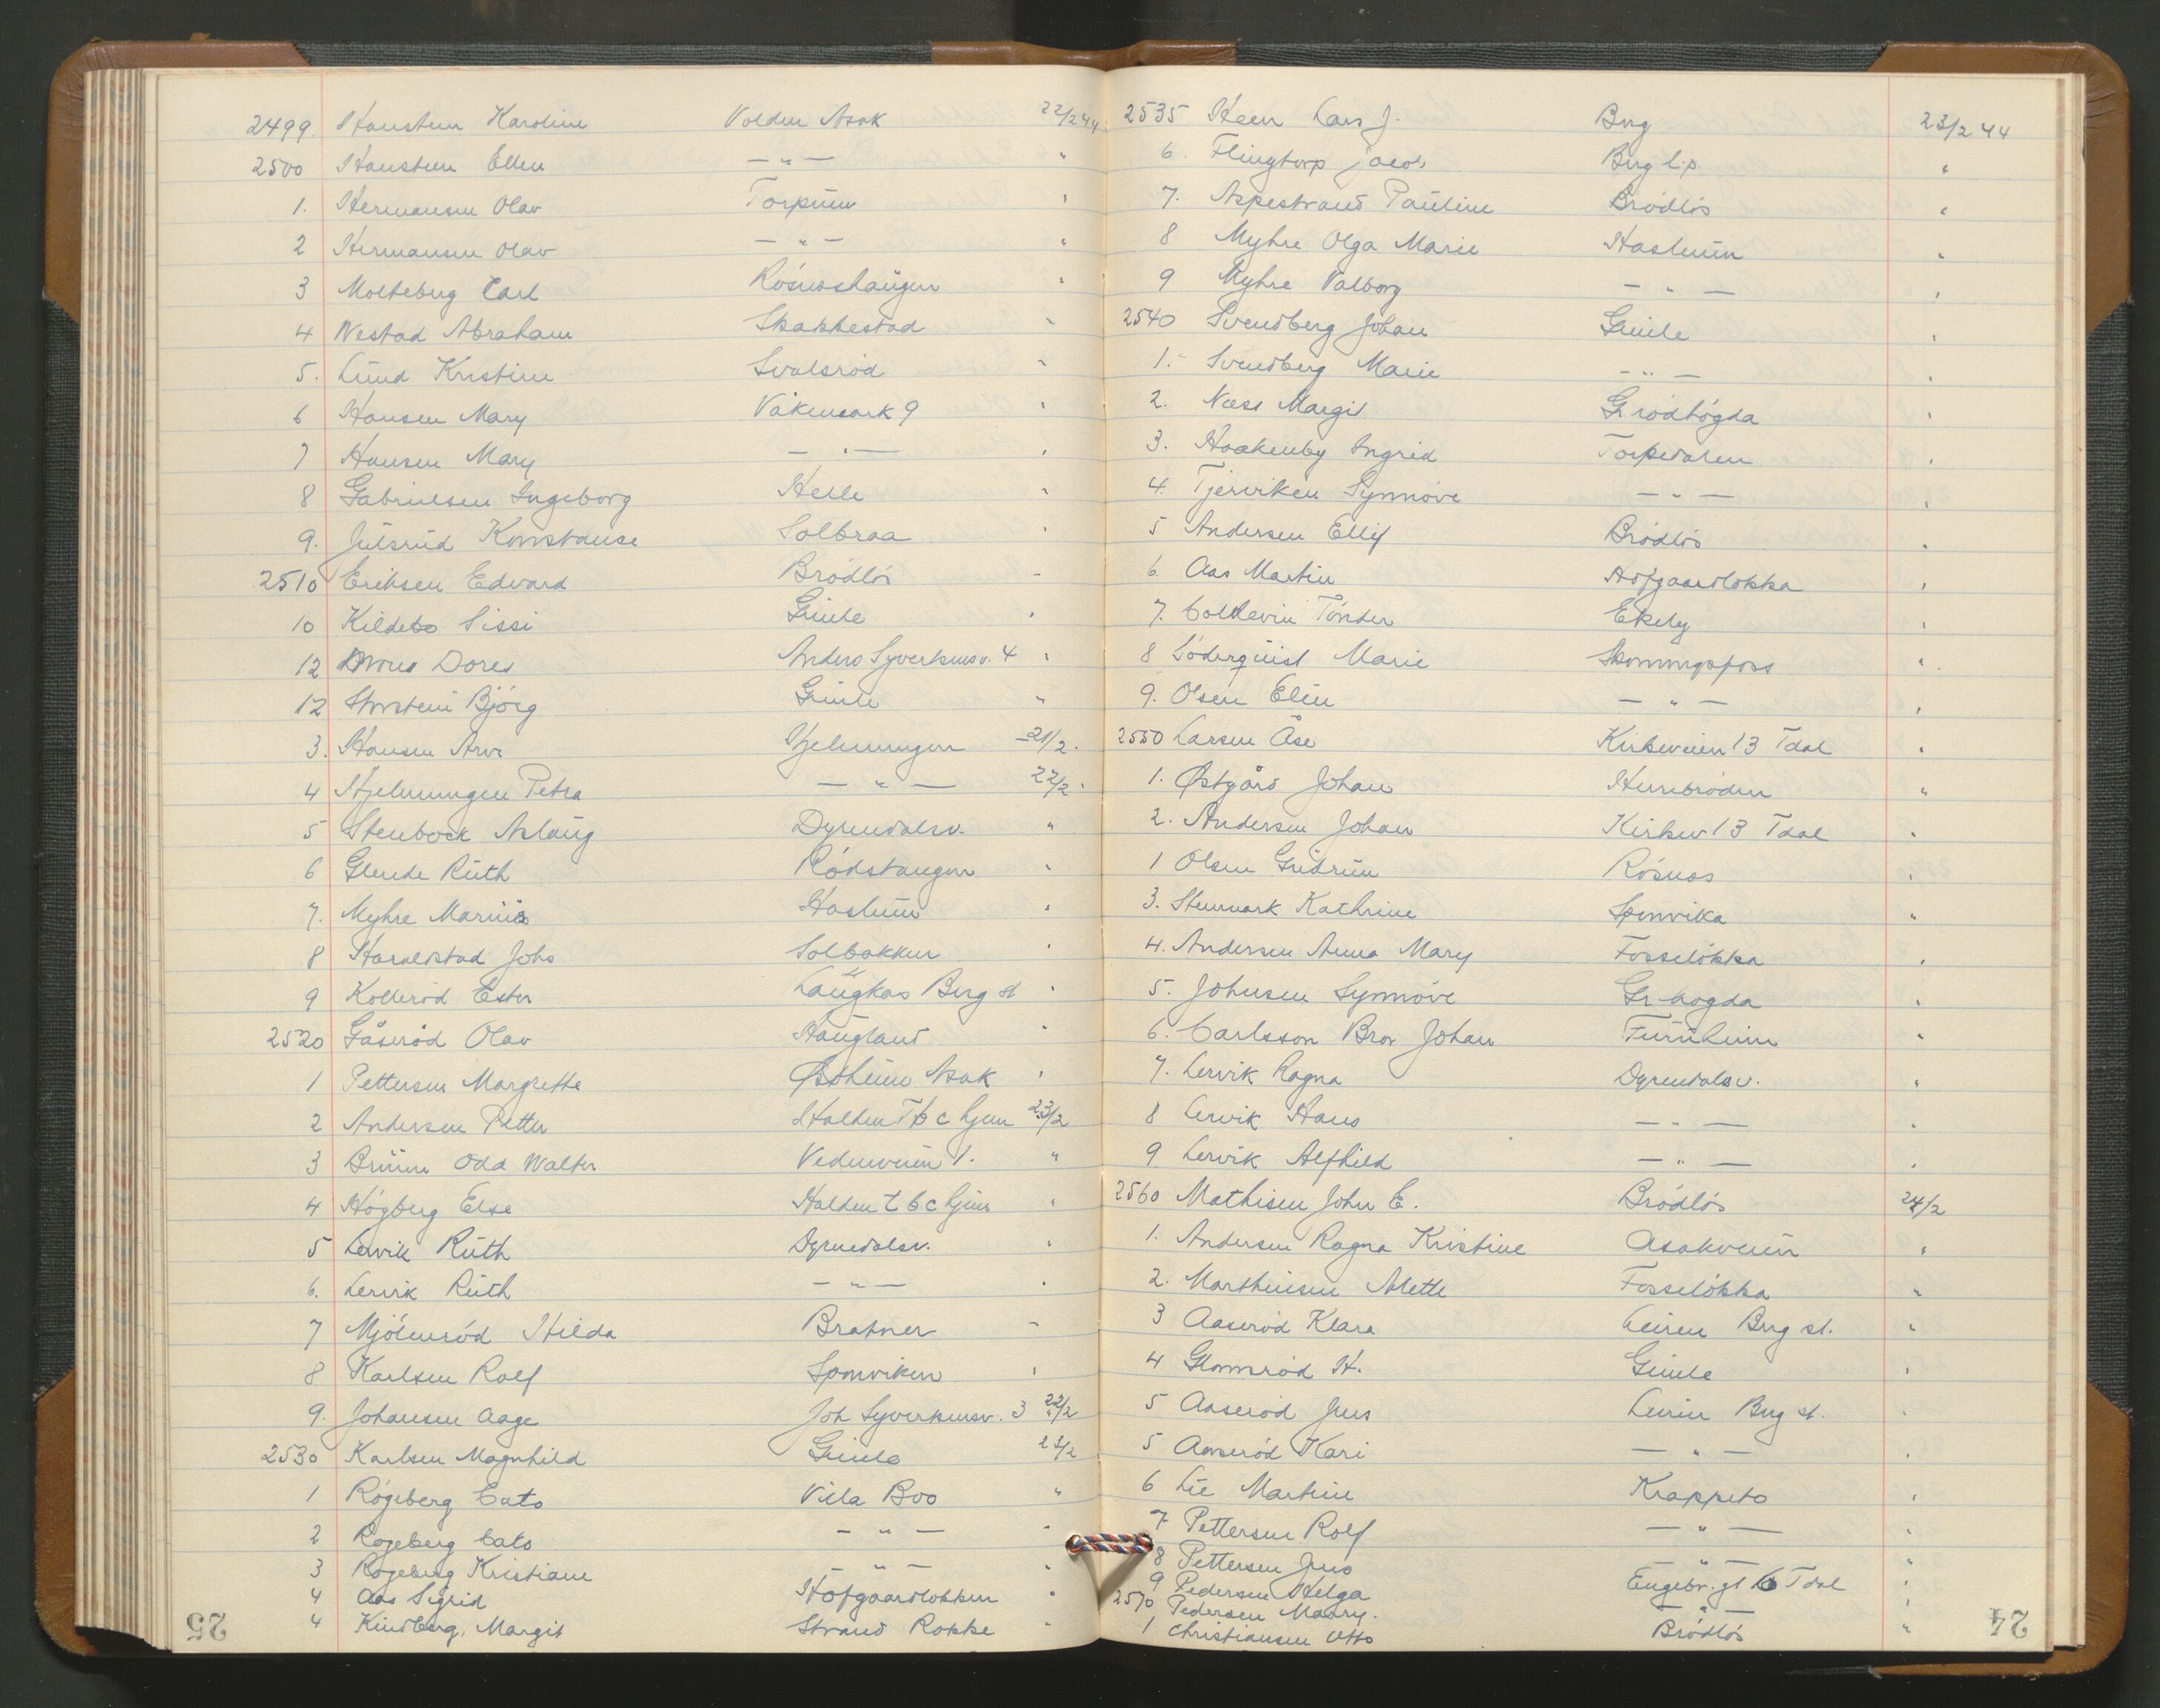 2499. Haustein Karoline Volden Asak 22/2 44
2500 Haustein Ellen — " — "
1. Hermansen Olav Torpum "
2 Hermansen Olav — " — "
3 Molteberg Carl Rösneshaugen "
4 Westad Abraham Skakkestad "
5. Lund Kristine Svalsröd "
6 Hansen Mary Våkenmark 9 "
7 Hansen Mary — " — "
8 Gabrielsen Ingeborg Helle "
9. Julsrud Konstanse Solbraa "
2510 Eriksen Edvard Brödlös "
10 Kildebo Sissi Grimle "
12 Dores Anders Syvertsensv. 4 "
12 Björg "
3. Hansen Hjelmungen 21/2.
4 Hjelmungen Petra — " — 22/2.
5 Stenbock Aslaug Dyrendalsv. "
6 Glende Ruth Rödshaugen "
7. Myhre Marius Haslum "
8 Haraldstad Johs Solbakken "
9 Kolleröd Ester Berg st "
2520 Gåseröd Olav Haugland "
1 Pettersen Margrethe Östheim Asak "
2 Andersen Petter Halden T b c hjem 23/2
3 Bruun Odd Walter Vedenveien 1. "
4 Högberg Else Halden t b c hjem "
5 Lervik Ruth Dyrendalsv. "
6. Lervik Ruth — " — "
7 Mjölneröd Hilda Bratner "
8 Karlsen Rolf Sponviken "
9. Johansen Aage Joh Syvertsensv. 3 22/2
2530 Karlsen Magnhild 23/2
1 Rögeberg Cato Villa Boo "
2 Rogeberg Cato — " — "
3 Rogeberg Kristiane — " — "
4 Aas Sigrid Hofgaardlokken "
4 Kindberg, Margit Strand Rokke "
25
2535 Steen Lars J. Berg 23/2 44
6. Flingtorp Jacob Berg l.p. "
7. Aspestrand Pauline Brödlös "
8 Myhre Olga Marie Haslum "
9 Myhre Valborg — " — "
2540 Svendberg Johan "
1. Svendberg Marie — " — "
2. Næss Margit Grödhögda "
3. Haakenby Ingrid Torpedalen "
4. Tjerviken Synnöve — " — "
5 Andersen Ellif Brödlös "
6. Aas Martin Hofgaardlökka "
7. Coldevin Tönder Ekely "
8 Söderquist Marie Skonningsfoss "
9. Olsen Elin — " — "
2550 Larsen Åse Kirkeveien 13 Tdal "
1. Östgård Johan "
2. Andersen Johan Kirkev 13 Tdal "
1 Olsen Gudrun Rösnes "
3. Stenmark Kathrine Sponvika "
4. Andersen Anna Mary Fosselökka "
5. Johnsen Synnöve Gr. högda "
6. Carlsson Bror Johan Furuheim "
7. Lervik Ragna Dyrendalsv. "
8 Lervik Hans — " — "
9 Lervik Alfhild — " — "
2560 Mathisen John E. Brödlös 24/2
1. Andersen Ragna Kristine Asakveien "
2. Marthinsen Mette Fosselökka "
3 Aaseröd Klara Leiren Berg st. "
4 Glomsröd H. "
5 Aaseröd Jens Leiren Berg st. "
5 Aaseröd Kari — " — "
6 Lie Martine Krappeto "
7 Pettersen Rolf — " — "
8 Pettersen Jens — " — "
9 Pedersen Helga Engebr. gt 6 Tdal "
2570 Pedersen Maary. — " — "
1 Christiansen Otto Brödlös "
24